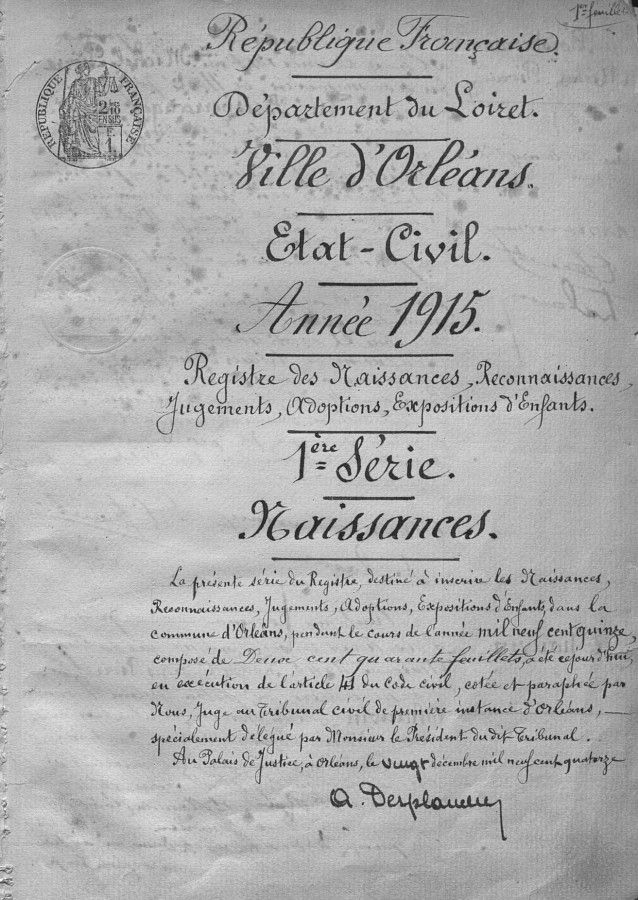 1er feuillet
République Française.
RÉPUBLIQUE FRANÇAISE
2/10 EN SUS
F. 1
Département du Loiret.
Ville d'Orléans.
Etat-Civil.
Année 1915.
Registre des Naissances, Reconnaissances,
Jugements, Adoptions, Expositions d'Enfants.
1ère Série.
Naissances.
La présente série du Registre, destiné à inscrire les Naissances,
Reconnaissances, Jugements, Adoptions, Expositions d'Enfants, dans la
commune d'Orléans, pendant le cours de l'année mil neuf cent quinze,
composé de Deux cent quarante feuillets, a été ce jour d'hui,
en exécution de l'article 41 du Code civil, cotée et paraphée par
Nous, Juge au Tribunal civil de première instance d'Orléans,
spécialement délégué par Monsieur le Président du dit Tribunal.
Au Palais de Justice, à Orléans, le vingt décembre mil neuf cent quatorze
A.